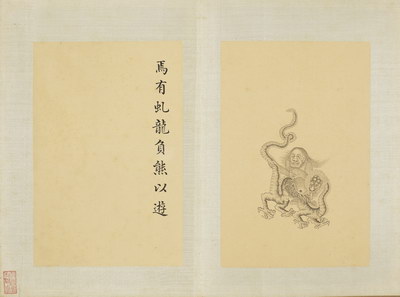 焉有虬龍負熊以遊